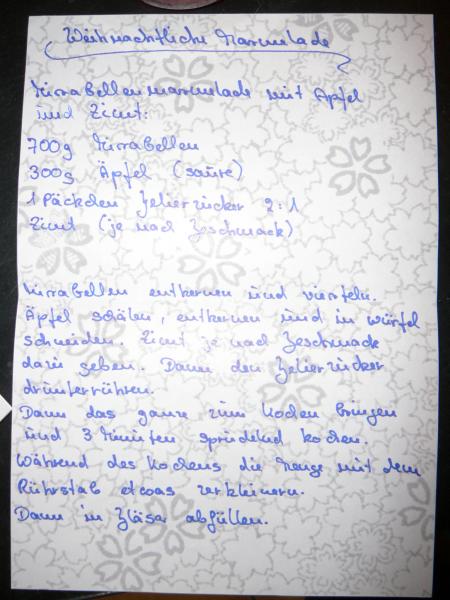 Weihnachtliche Marmelade
Mirabellenmarmelade mit Apfel
und Zimt:
700g Mirabellen
300g Äpfel (saure)
1 Päckchen Gelierzucker 2:1
Zimt (je nach Geschmack)
Mirabellen entkernen und vierteln.
Äpfel schälen, entkernen und in würfel
schneiden. Zimt je nach Geschmack
dazu geben. Dann den Gelierzucker
drunterrühren.
Dann das ganze zum kochen bringen
und 3 Minuten sprudelnd kochen.
Während des Kochens die Menge mit dem
Rührstab etwas zerkleinern.
Dann in Gläser abfüllen.